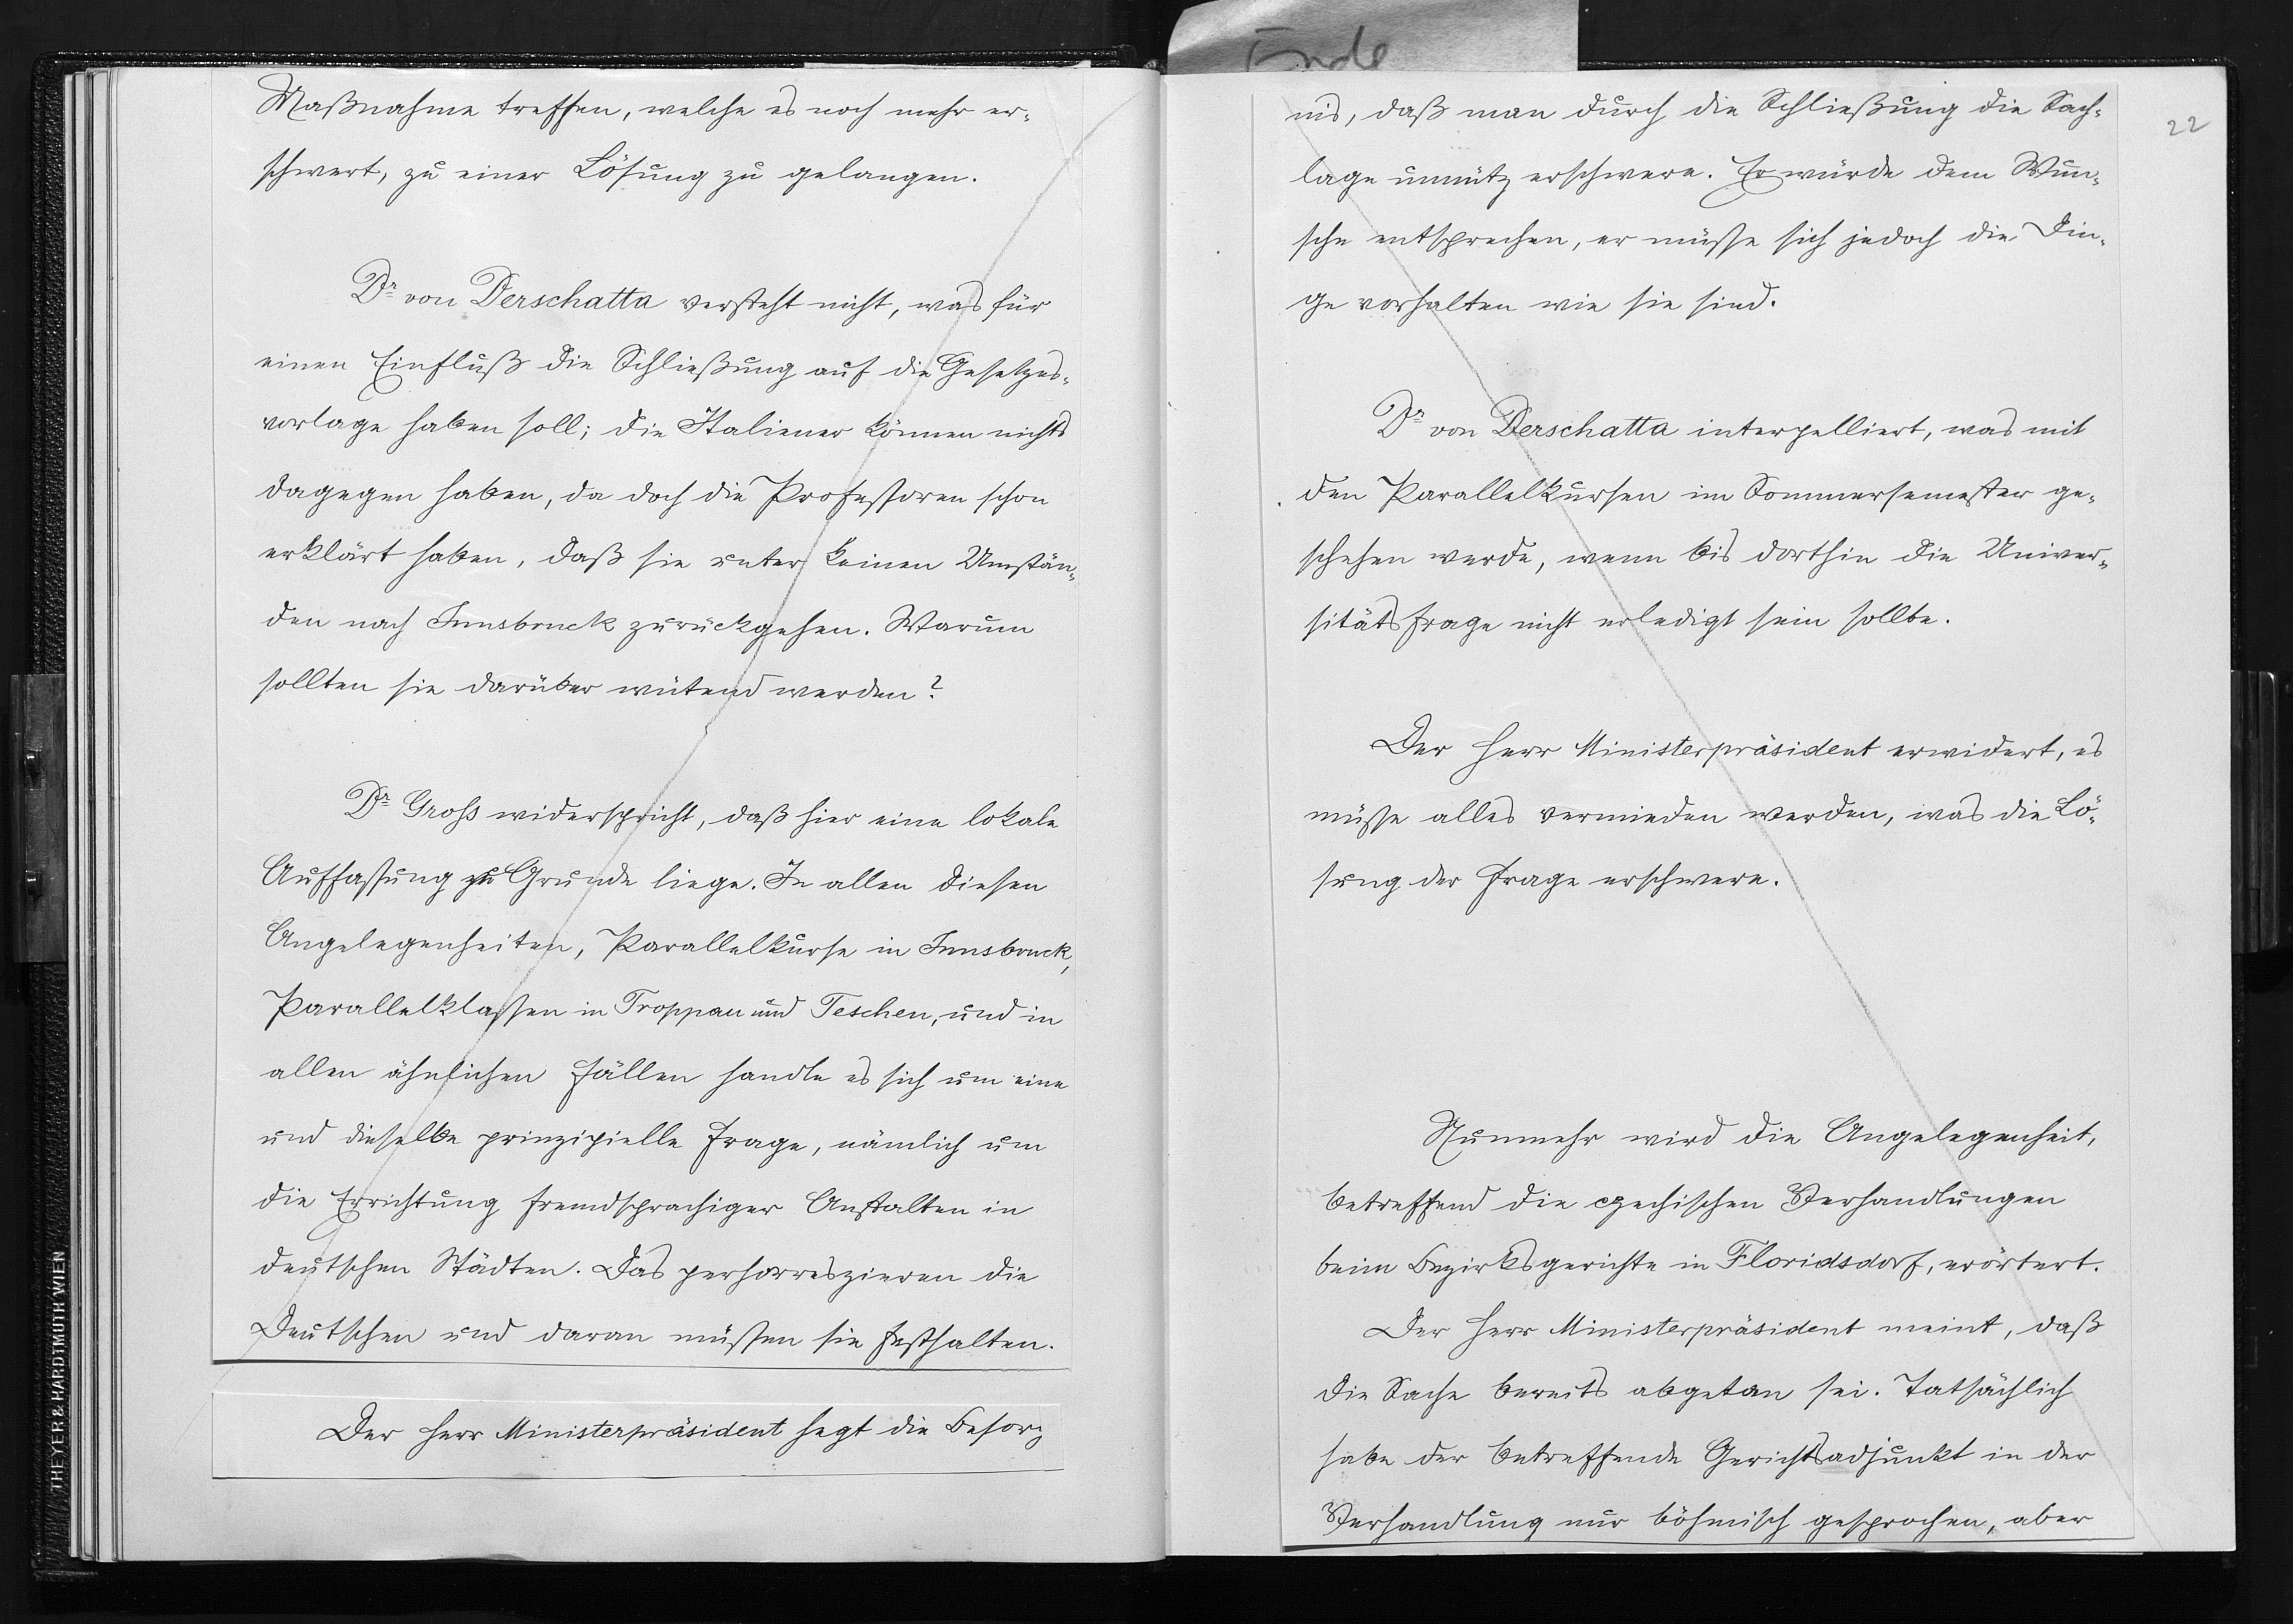 Ende
Maßnahme treffen, welche es noch mehr er-
schwert, zu einer Lösung zu gelangen.
Dr von Derschatta versteht nicht, was für
einen Einfluß die Schließung auf die Gesetzes-
vorlage haben soll; die Italiener können nichts
dagegen haben, da doch die Professoren schon
erklärt haben, daß sie unter keinen Umstän-
den nach Innsbruck zurückgehen. Warum
sollten sie darüber wütend werden?
Dr Groß widerspricht, daß hier eine lokale
Auffassung zu Grunde liege. In allen diesen
Angelegenheiten, Parallelkurse in Innsbruck,
Parallelklassen in Troppau und Teschen, und in
allen ähnlichen Fällen handle es sich um eine
und dieselbe prinzipielle Frage, nämlich um
die Errichtung fremdsprachiger Anstalten in
deutschen Städten. Das perhorreszieren die
Deutschen und daran müssen sie festhalten.
Der Herr Ministerpräsident hegt die Besorg
THEYER & HARDTMUTH WIEN
22
nis, daß man durch die Schließung die Sach-
lage unnütz erschwere. Er würde dem Wun-
sche entsprechen, er müsse sich jedoch die Din-
ge vorhalten wie sie sind.
Dr von Derschatta interpelliert, was mit
den Parallelkursen im Sommersemester ge-
schehen werde, wenn bis dorthin die Univer-
sitätsfrage nicht erledigt sein sollte.
Der Herr Ministerpräsident erwidert, es
müsse alles vermieden werden, was die Lö-
sung der Frage erschwere.
Nunmehr wird die Angelegenheit,
betreffend die czechischen Verhandlungen
beim Bezirksgerichte in Floridsdorf, erörtert.
Der Herr Ministerpräsident meint, daß
die Sache bereits abgetan sei. Tatsächlich
habe der betreffende Gerichtsadjunkt in der
Verhandlung nur böhmisch gesprochen, aber